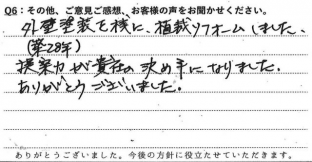 Q6：その他、ご意見ご感想、お客様の声をお聞かせください。
外壁塗装を機に、植栽リフォームしました。
(築28年)
提案力が貴社の決め手になりました。
ありがとうございました。
ありがとうございました。今後の方針に役立たせていただきます。